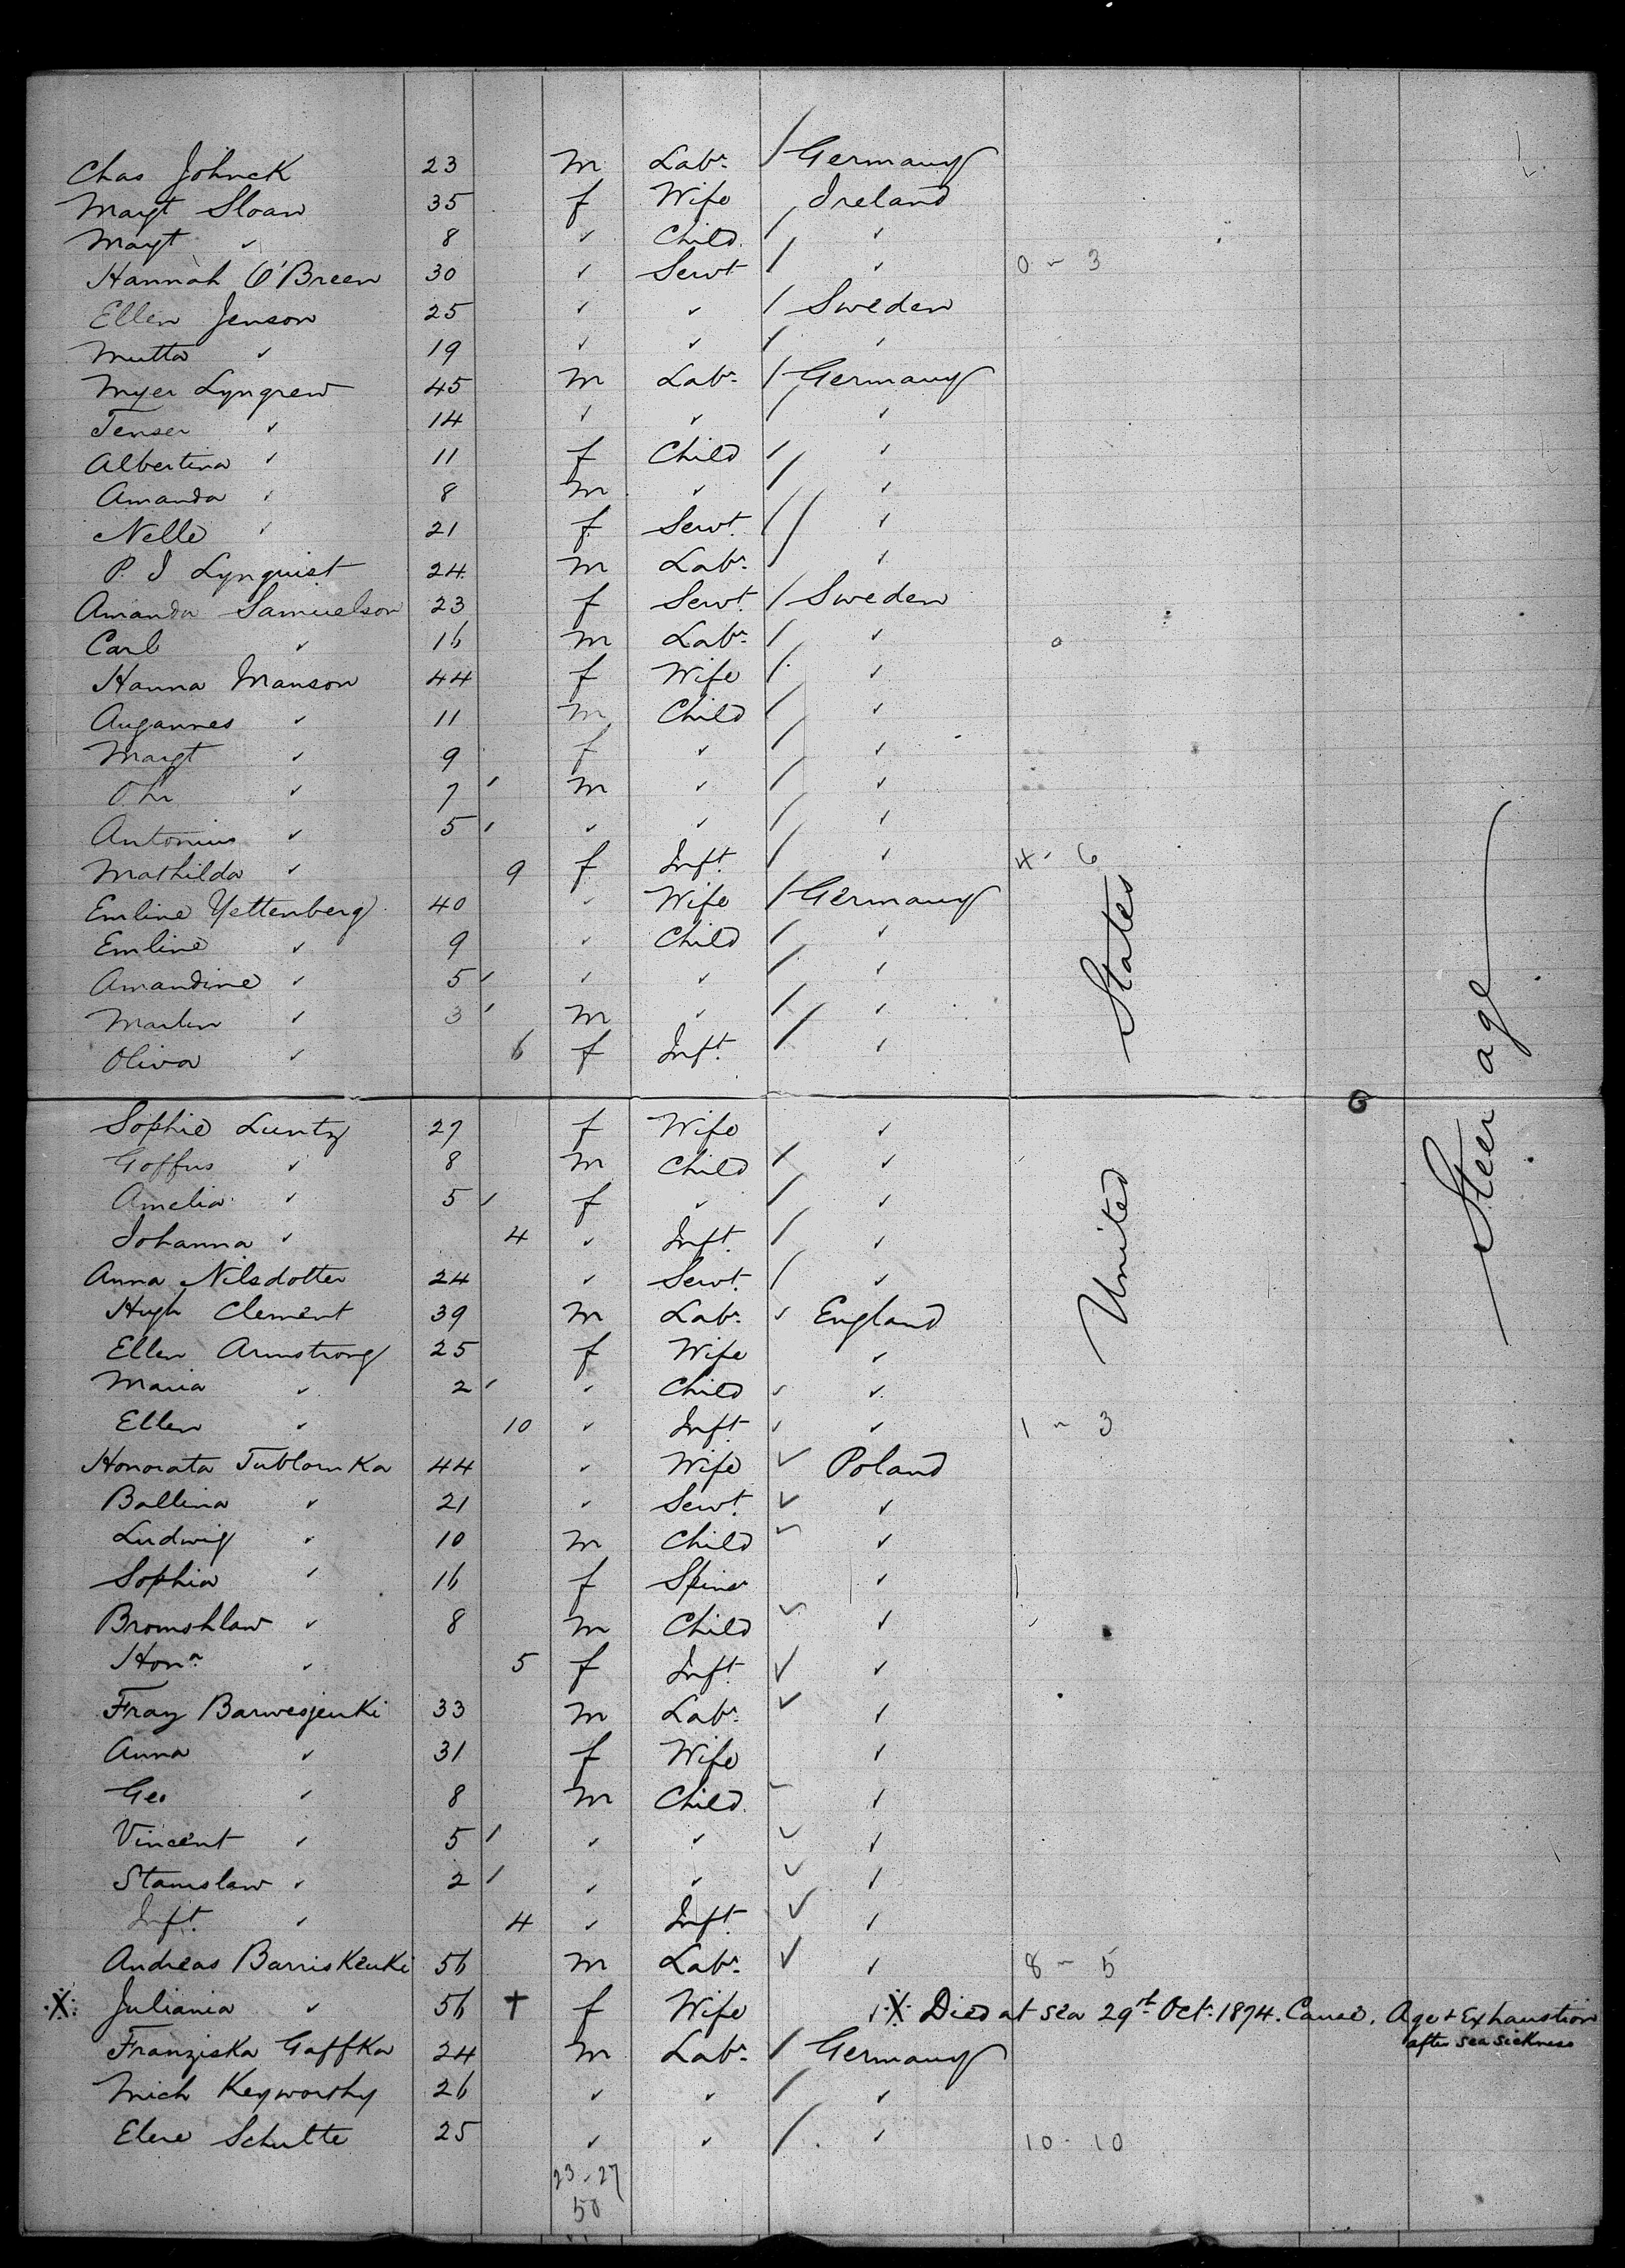 Chas Johnck 23 m Labr / Germany
Margt Sloan 35 f Wife Ireland
Margt " 8 " Child / "
Hannah O'Breen 30 " Servt / " 0 - 3
Ellen Jenson 25 " " / Sweden
Mutta " 19 " " / "
Myer Lyngrew 45 m Labr / Germany
Tenser " 14 " " / "
Albertina " 11 f Child / "
Amanda " 8 m " / "
Nelle " 21 f Servt / "
P. J Lynquist 24 m Labr / "
Amanda Samuelson 23 f Servt / Sweden
Carl " 16 m Labr / "
Hanna Manson 44 f Wife / "
Augannes " 11 m Child / "
Margt " 9 f " / "
" 7 m " / "
Antonius " 5 " " / "
Mathilda " 9 f Inft / " 4 - 6
Emline Yettenberg 40 " Wife / Germany
Emline " 9 " Child / "
Amandine " 5 " " / "
Martin " 3 m " / "
Oliva " 6 f Inft / "
Sophie Luntz 27 f Wife "
Goffus " 8 m Child / "
Amelia " 5 f " / "
Johanna " 4 " Inft / "
Anna Nilsdotter 24 " Servt / "
Hugh Clement 39 m Labr England
Ellen Armstrong 25 f Wife "
Maria " 2 " Child "
Ellen " 10 " Inft " 1 - 3
Honorata Tublomka 44 " Wife Poland
Ballina " 21 " Servt "
Ludwig " 10 m Child "
Sophia " 16 f Spinr "
Bromshlaw " 8 m Child "
Hona " 5 f Inft "
Franz Barwesjenki 33 m Labr "
Anna " 31 f Wife "
Geo " 8 m Child "
Vincent " 5 " " "
Stanislaw " 2 " " "
Inft " 4 " Inft "
Andreas Barriskenki 56 m Labr " 8 - 5
X Juliania " 56 † f Wife " X Died at sea 29th Octr 1874. Cause, Age & Exhaustion
after sea sickness
Franziska Gaffka 24 m Labr / Germany
Mich Keyworthy 26 " " / "
Elene Schulte 25 " " / " 10 - 10
23 - 27
50
United States
Steerage